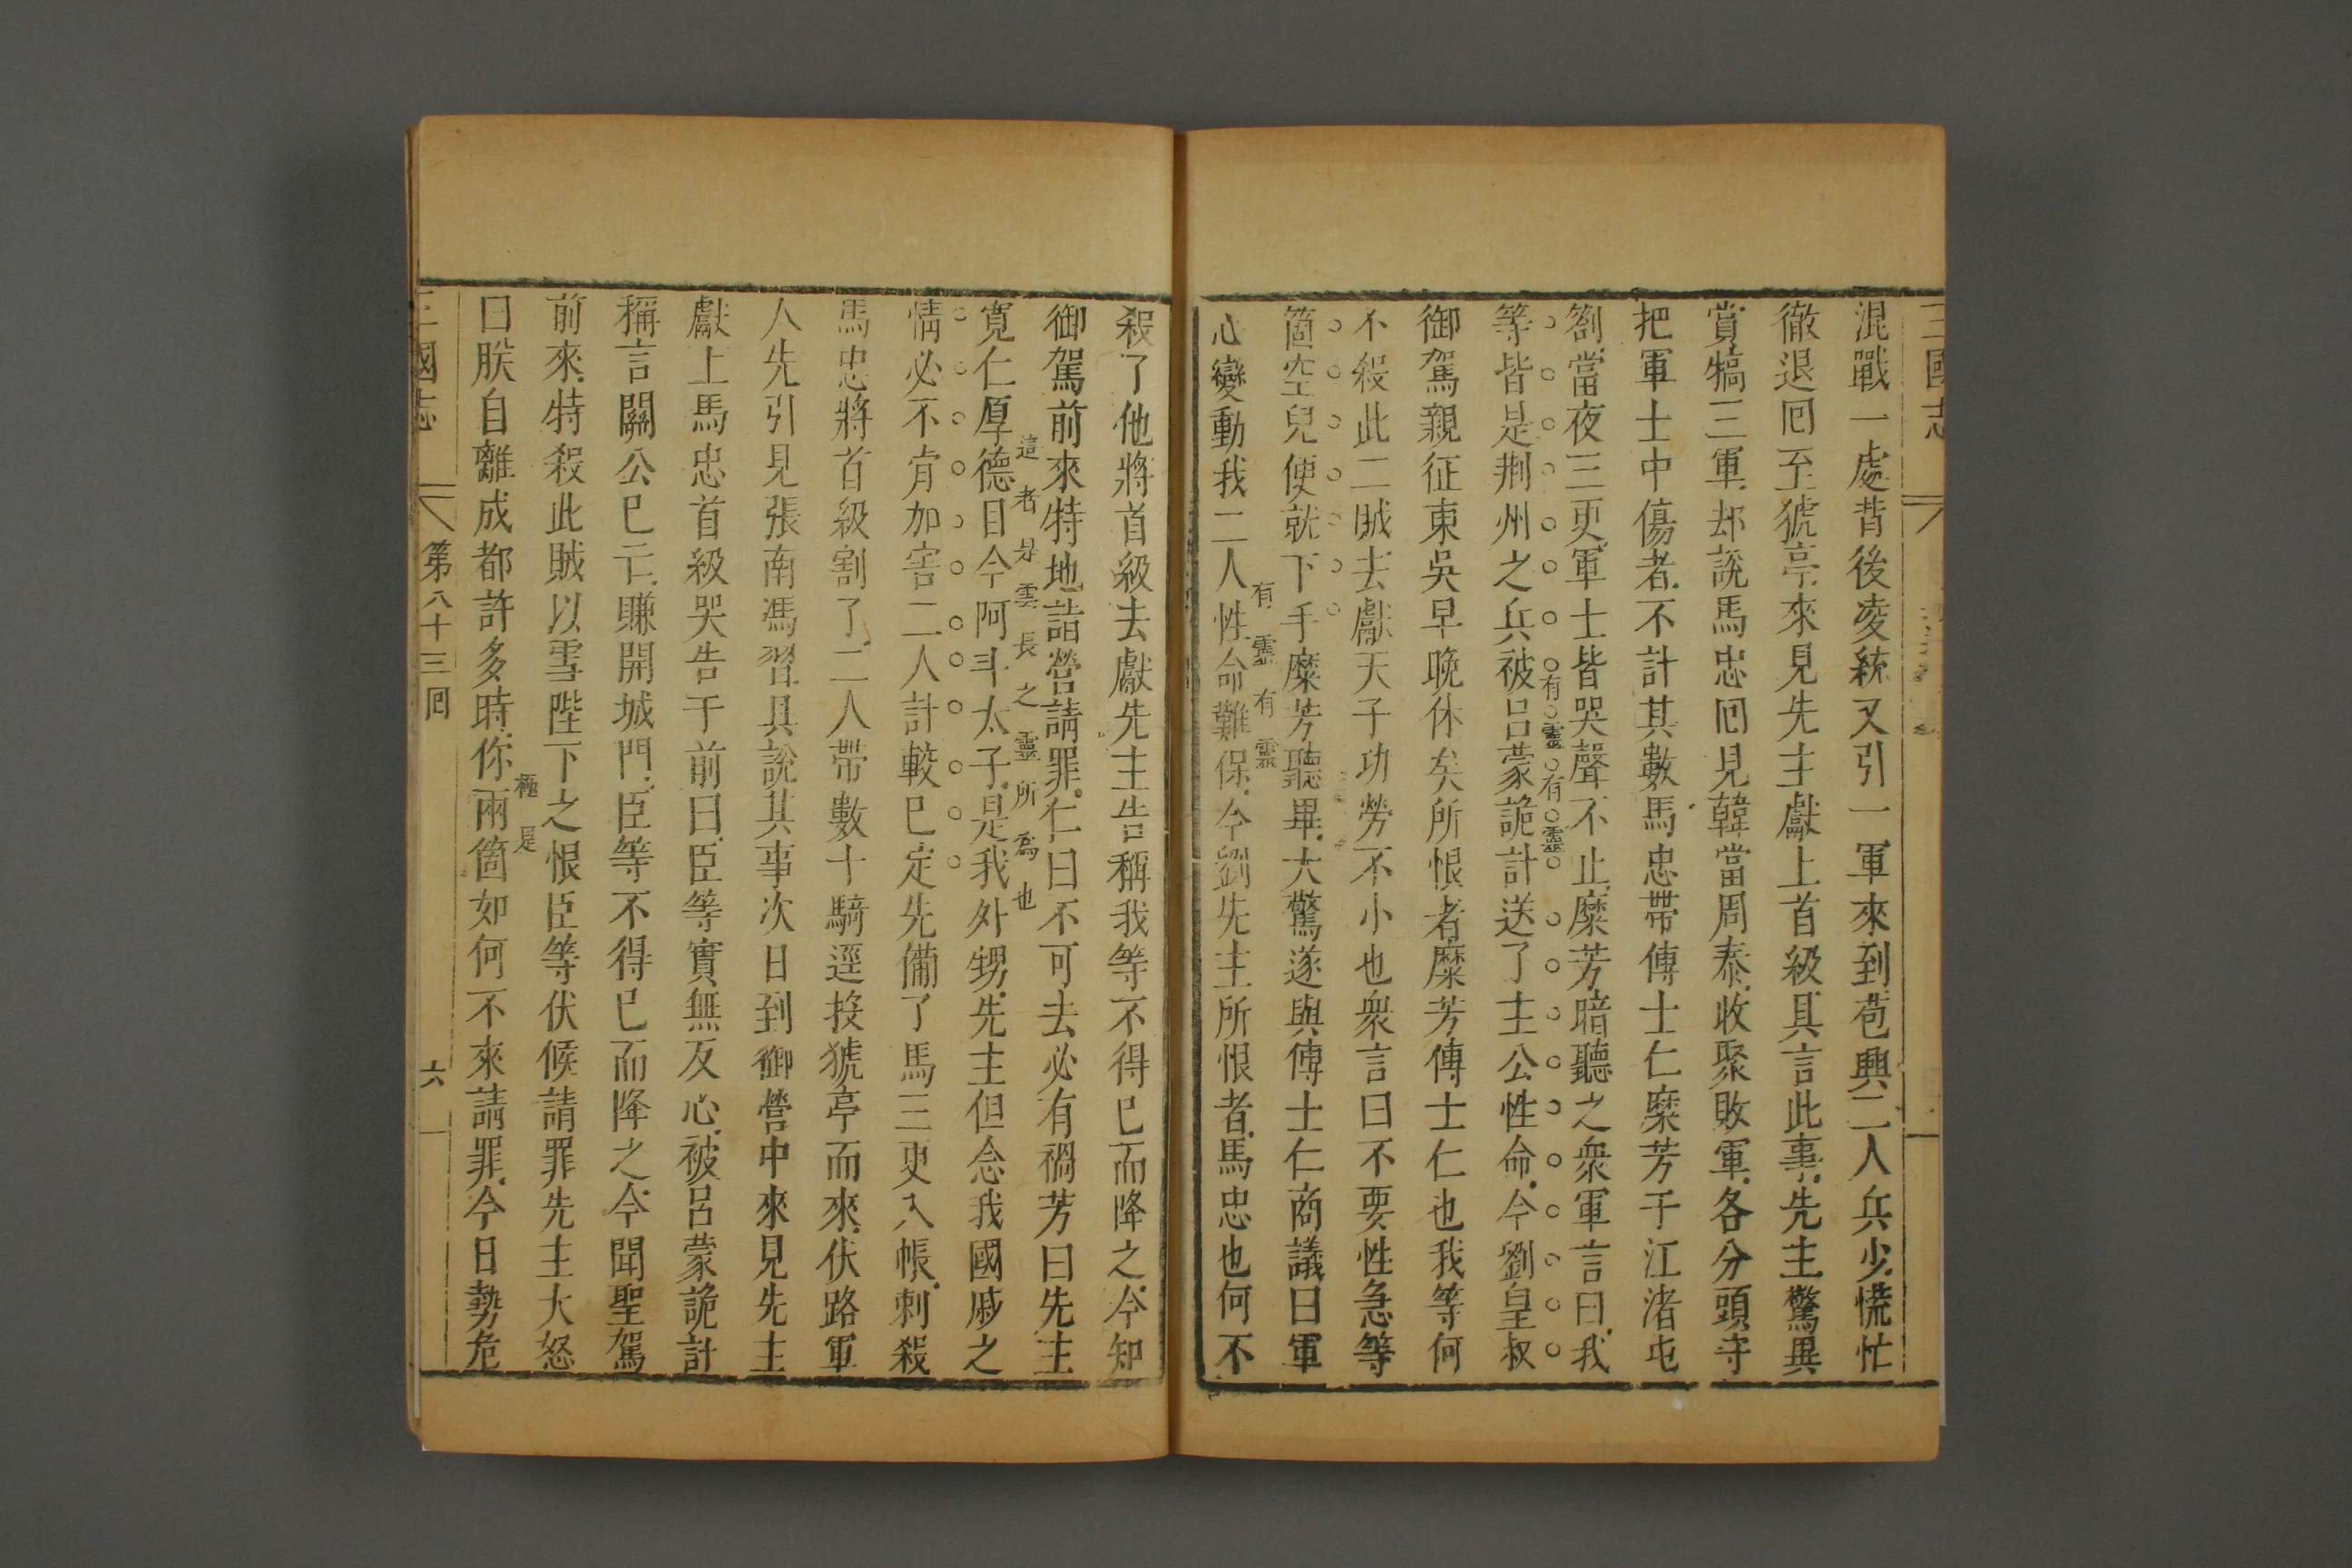 三國志
混戰一處背後凌統又引一軍來到苞興二人兵少慌忙
徹退囘至猇亭來見先主獻上首級具言此事先主驚異
賞犒三軍却說馬忠囘見韓當周泰收聚敗軍各分頭守
把軍士中傷者不計其數馬忠帶傅士仁糜芳于江渚屯
劄當夜三更軍士皆哭聲不止糜芳暗聽之衆軍言曰我
有靈有靈
等皆是荆州之兵被呂蒙詭計送了主公性命今劉皇叔
御駕親征東吳早晚休矣所恨者糜芳傅士仁也我等何
不殺此二賊去獻天子功勞不小也衆言曰不要性急等
箇空兒便就下手糜芳聽畢大驚遂與傅士仁商議曰軍
有靈有靈
心變動我二人性命難保今劉先主所恨者馬忠也何不
殺了他將首級去獻先主告稱我等不得已而降之今知
御駕前來特地詣營請罪仁曰不可去必有禍芳曰先主
這者是雲長之靈所爲也
寛仁厚德目今阿斗太子是我外甥先主但念我國戚之
情必不肯加害二人計較已定先備了馬三更入帳刺殺
馬忠將首級割了二人帶數十騎逕投猇亭而來伏路軍
人先引見張南馮習具說其事次日到御營中來見先主
獻上馬忠首級哭告于前曰臣等實無反心被呂蒙詭計
稱言關公已亡賺開城門臣等不得已而降之今聞聖駕
前來特殺此賊以雪陛下之恨臣等伏候請罪先主大怒
極是
曰朕自離成都許多時你兩箇如何不來請罪今日勢危
三國志
第八十三囘
六